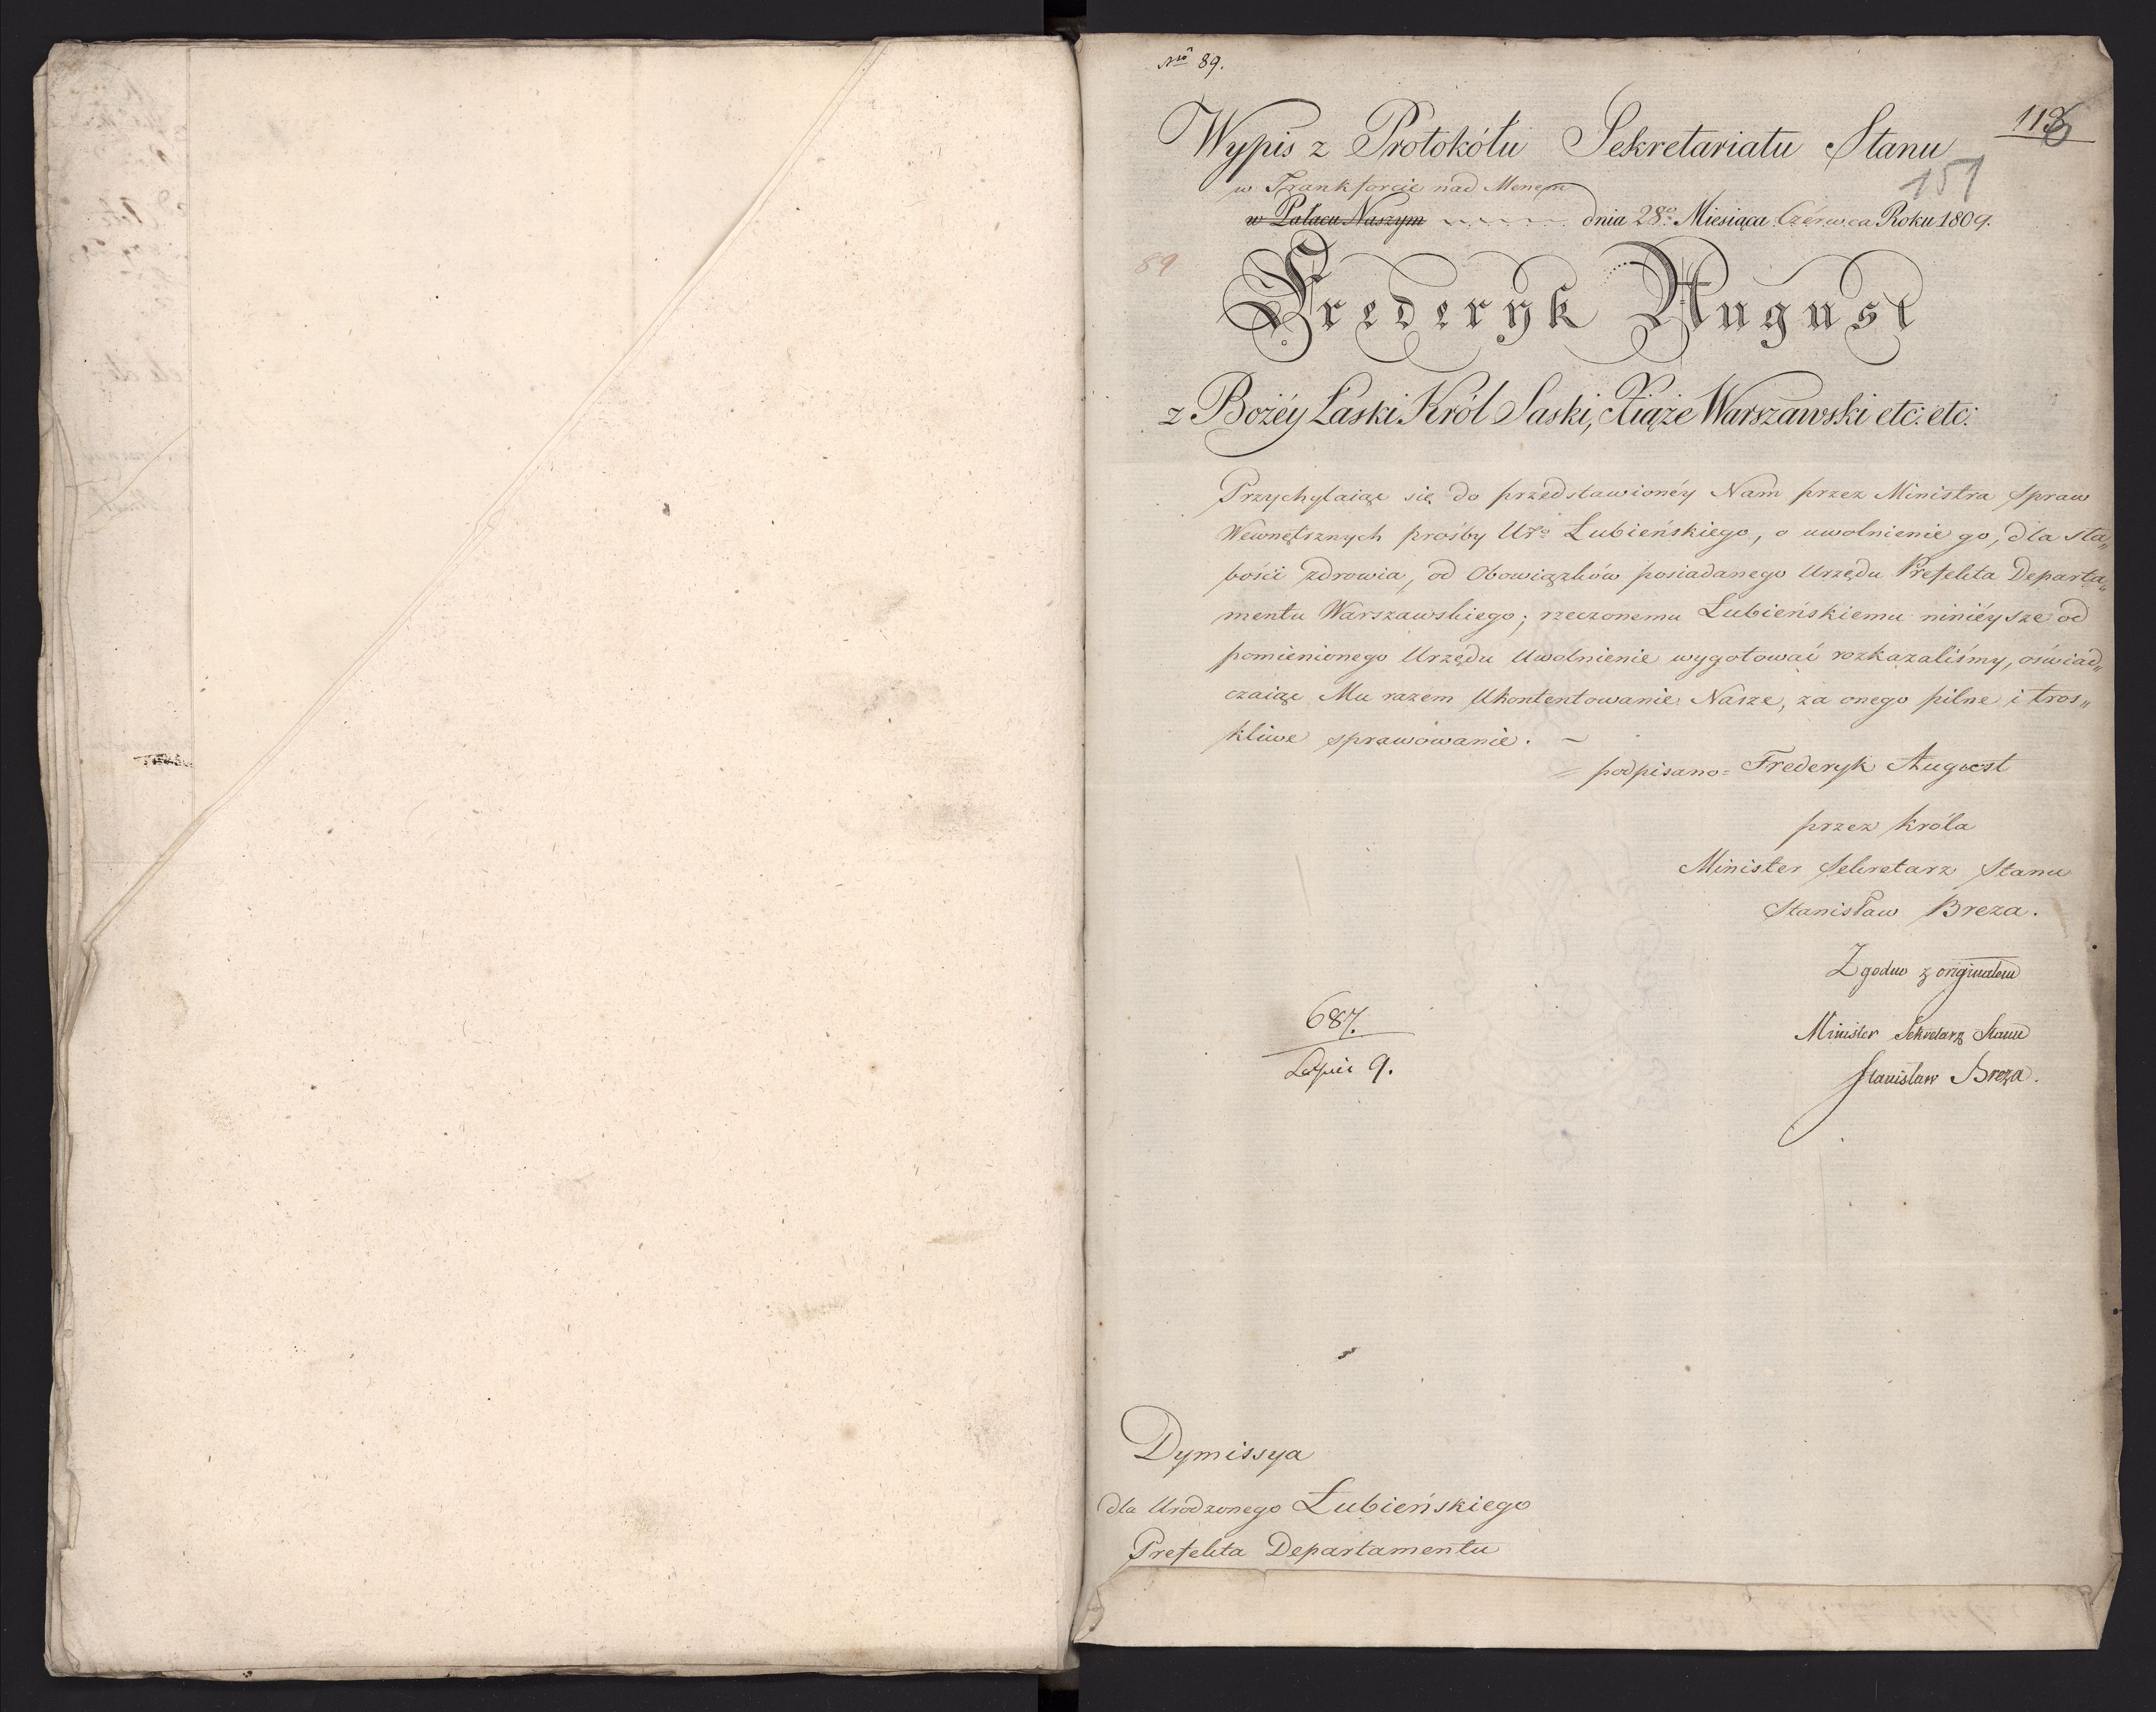 Nro 89.
118
Wypis z Protokółu Sekretariatu Stanu
151
w Frankforcie nad Menem
w Pałacu Naszym dnia 28o Miesiąca Czérwca Roku 1809.
89
Frederyk August
z Bożéy Łaski Król Saski, Xiąże Warszawski etc: etc:
Przychylaiąc się do przedstawionéy Nam przez Ministra Spraw
Wewnętrznych prośby Uro Łubieńskiego, o uwolnienie go, dla sła„
bości zdrowia, od Obowiązków posiadanego Urzędu Prefekta Departa„
mentu Warszawskiego; rzeczonemu Łubieńskiemu niniéysze od
pomienionego Urzędu Uwolnienie wygotować rozkazaliśmy, oświad„
czaiąc Mu razem Ukontentowanie Nasze, za onego pilne i tros„
kliwe sprawowanie. ~
= podpisano = Frederyk August
przez Króla
Minister Sekretarz Stanu
Stanisław Breza.
Zgodno z originałem
Minister Sekretarz Stanu
Stanisław Breza.
687.
Lipca 9.
Dymissya
dla Urodzonego Łubieńskiego
Prefekta Departamentu